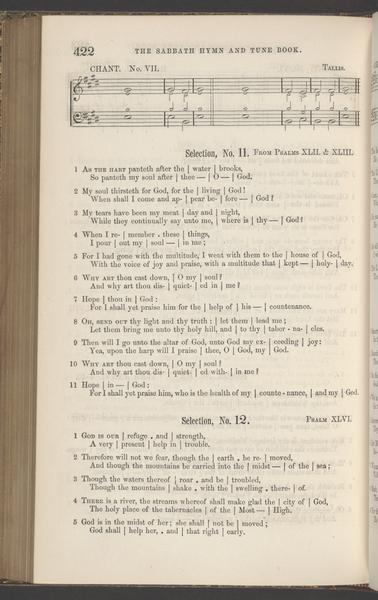 422
THE SABBATH HYMN AND TUNE BOOK.
CHANT. No. VII.
TALLIS.
Selection, No. 11. FROM PSALMS XLII. & XLIII.
1 AS THE HART panteth after the | water | brooks,
So panteth my soul after | thee — | O — | God.
2 My soul thirsteth for God, for the | living | God!
When shall I come and ap- | pear be- | fore — | God?
3 My tears have been my meat | day and | night,
While they continually say unto me, | where is | thy — | God?
4 When I re- | member . these | things,
I pour | out my | soul — | in me;
5 For I had gone with the multitude, I went with them to the | house of | God,
With the voice of joy and praise, with a multitude that | kept — | holy- | day.
6 WHY ART thou cast down, | O my | soul?
And why art thou dis- | quiet- | ed in | me?
7 Hope | thou in | God:
For I shall yet praise him for the | help of | his — | countenance.
8 OH, SEND OUT thy light and thy truth: | let them | lead me;
Let them bring me unto thy holy hill, and | to thy | taber - na- | cles.
9 Then will I go unto the altar of God, unto God my ex- | ceeding | joy:
Yea, upon the harp will I praise | thee, O | God, my | God.
10 WHY ART thou cast down, | O my | soul?
And why art thou dis- | quiet- | ed with- | in me?
11 Hope | in — | God:
For I shall yet praise him, who is the health of my | counte - nance, | and my | God.
Selection, No. 12. PSALM XLVI.
1 GOD IS OUR | refuge . and | strength,
A very | present | help in | trouble.
2 Therefore will not we fear, though the | earth . be re- | moved,
And though the mountains be carried into the | midst — | of the | sea;
3 Though the waters thereof | roar . and be | troubled,
Though the mountains | shake . with the | swelling . there- | of.
4 THERE is a river, the streams whereof shall make glad the | city of | God,
The holy place of the tabernacles | of the | Most — | High.
5 God is in the midst of her; she shall | not be | moved;
God shall | help her, . and | that right | early.